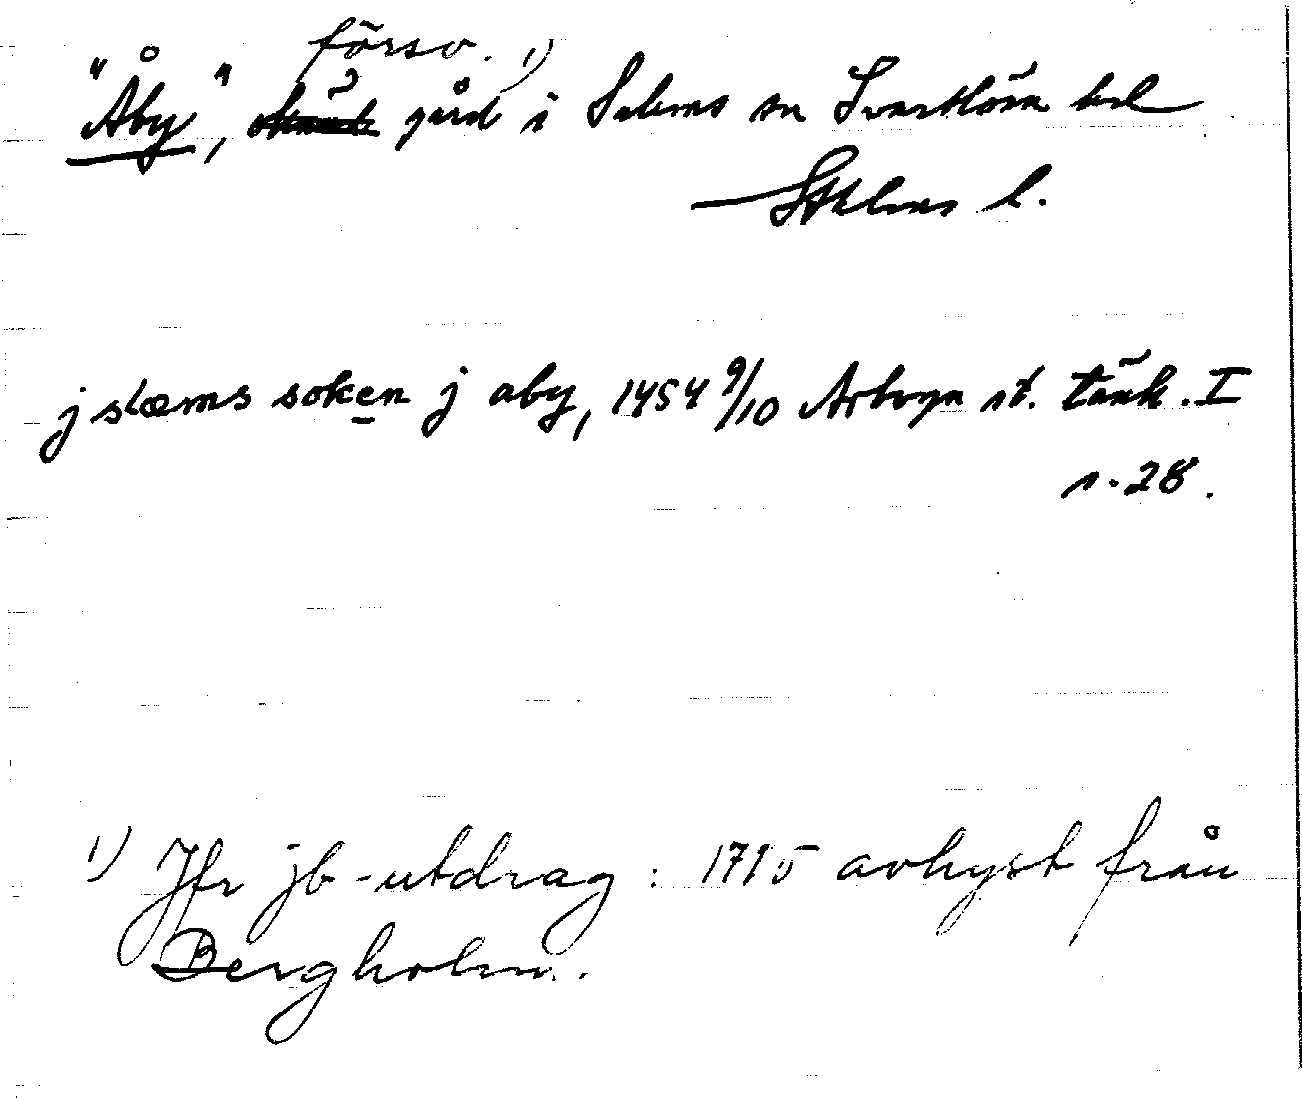 försv. 1)
"Åby", okänd gård i Salems sn Svartlösa hd
Sthlms l.
j slæms soken j aby, 1454 9/10 Arboga st. tänk. I
s. 28.
1) Jfr jb-utdrag : 1715 avhyst från
Bergholm.